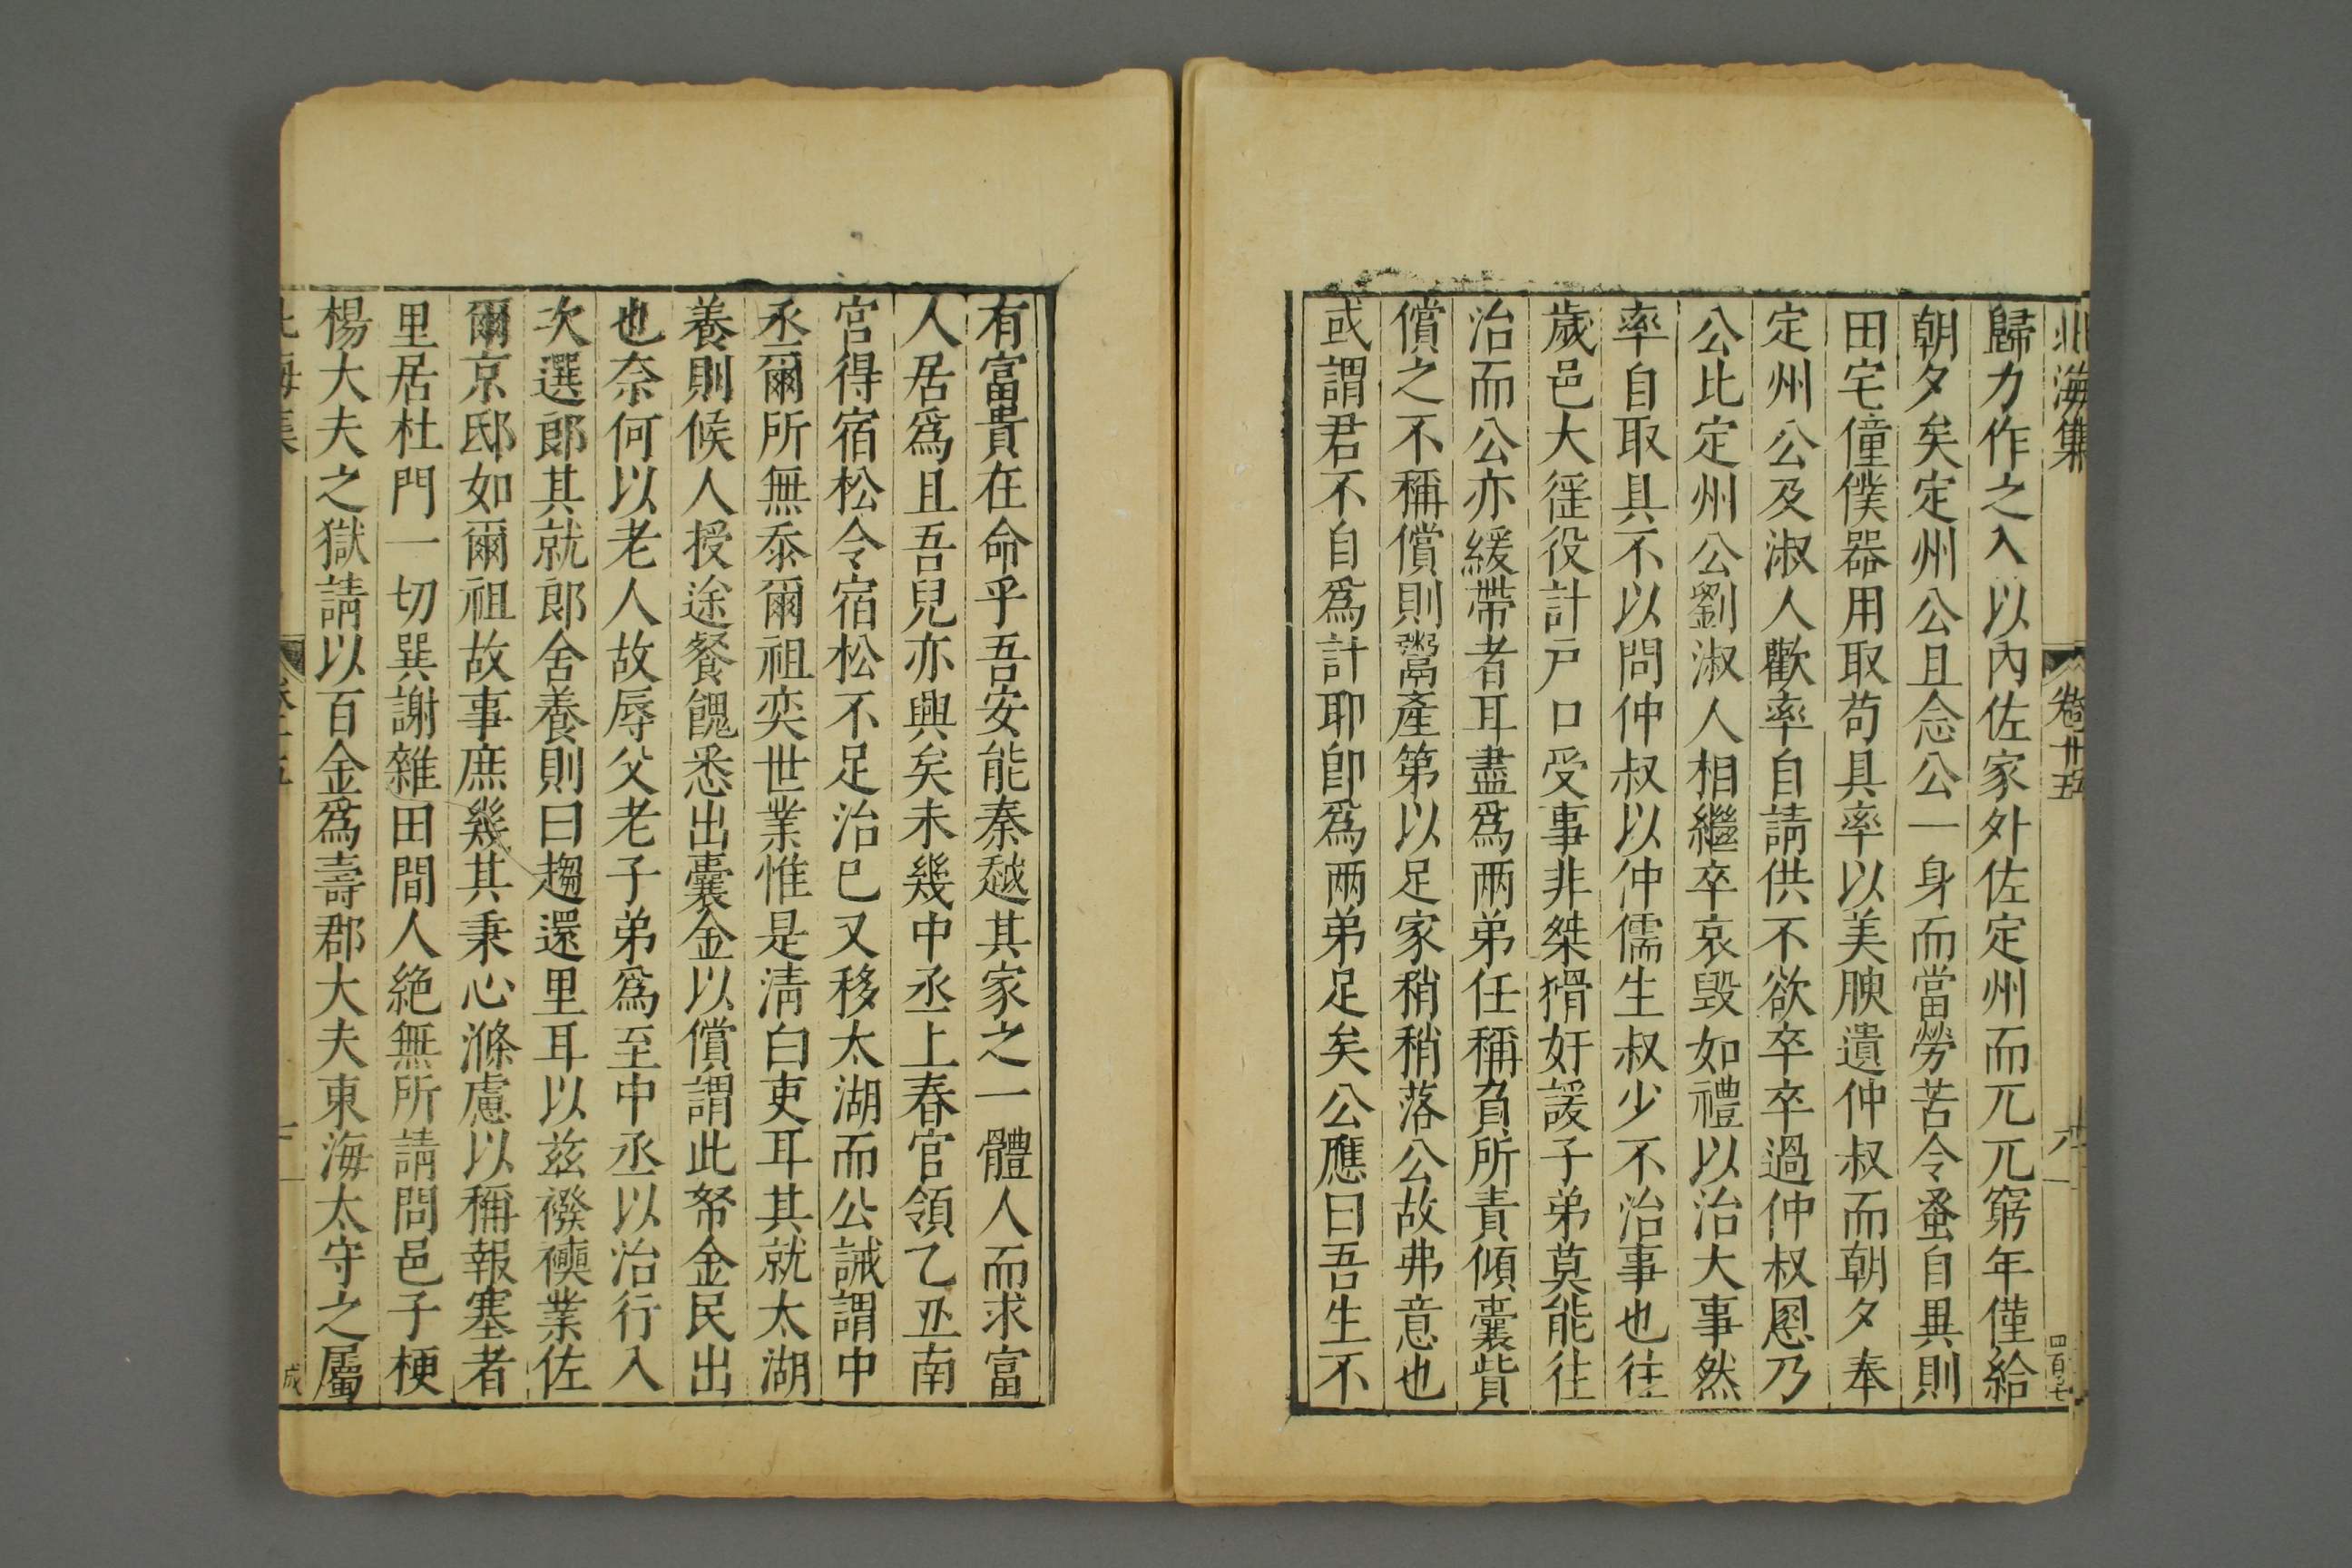 北海集 卷廿五 八 四百七
歸力作之入以內佐家外佐定州而兀兀窮年僅給
朝夕矣定州公且念公一身而當勞苦令蚤自異則
田宅僮僕器用取苟具率以美腴遺仲叔而朝夕奉
定州公及淑人歡率自請供不欲卒卒過仲叔恩乃
公比定州公劉淑人相繼卒哀毀如禮以治大事然
率自取具不以問仲叔以仲儒生叔少不治事也往
歲邑大徭役計戸口受事非桀猾奸諼子弟莫能往
治而公亦緩帶者耳盡爲兩弟任稱負所責傾囊貲
償之不稱償則鬻產第以足家稍稍落公故弗意也
或謂君不自爲計耶卽爲兩弟足矣公應曰吾生不
有富貴在命乎吾安能秦越其家之一體人而求富
人居爲且吾兒亦興矣未幾中丞上春官領乙丑南
官得宿松令宿松不足治已又移太湖而公誡謂中
丞爾所無忝爾祖奕世業惟是淸白吏耳其就太湖
養則候人授途餐餽悉出囊金以償謂此帑金民出
也奈何以老人故辱父老子弟爲至中丞以治行入
次選郎其就郎舍養則曰趨還里耳以茲襏襫業佐
爾京邸如爾祖故事庶幾其秉心滌慮以稱報塞者
里居杜門一切巽謝雜田間人絶無所請問邑子梗
楊大夫之獄請以百金爲壽郡大夫東海太守之屬
北海集 成